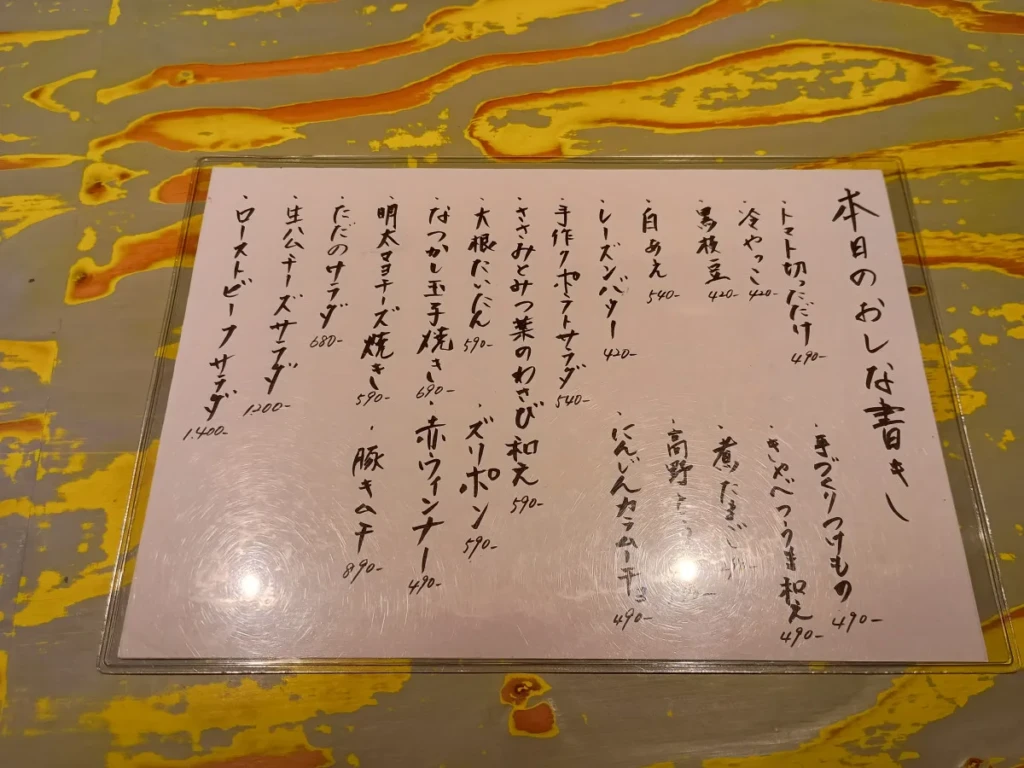 本日のおしな書き
・トマト切っただけ 490-
・手づくりつけもの 490-
・冷やっこ 420-
・きゃべつうま和え 490-
・黒枝豆 420-
・煮たまご
・白あえ 540-
・高野とう
・レーズンバター 420-
・にんじんカラムーチョ 490-
・手作りポテトサラダ 540-
・ささみとみつ葉のわさび和え 590-
・大根たいたん 590-
・ズリポン 590-
・なつかし玉子焼き 690-
・赤ウィンナー 490-
・明太マヨチーズ焼き 590-
・豚キムチ 890-
・ただのサラダ 680-
・生ハムチーズサラダ 1200-
・ローストビーフサラダ 1.400-